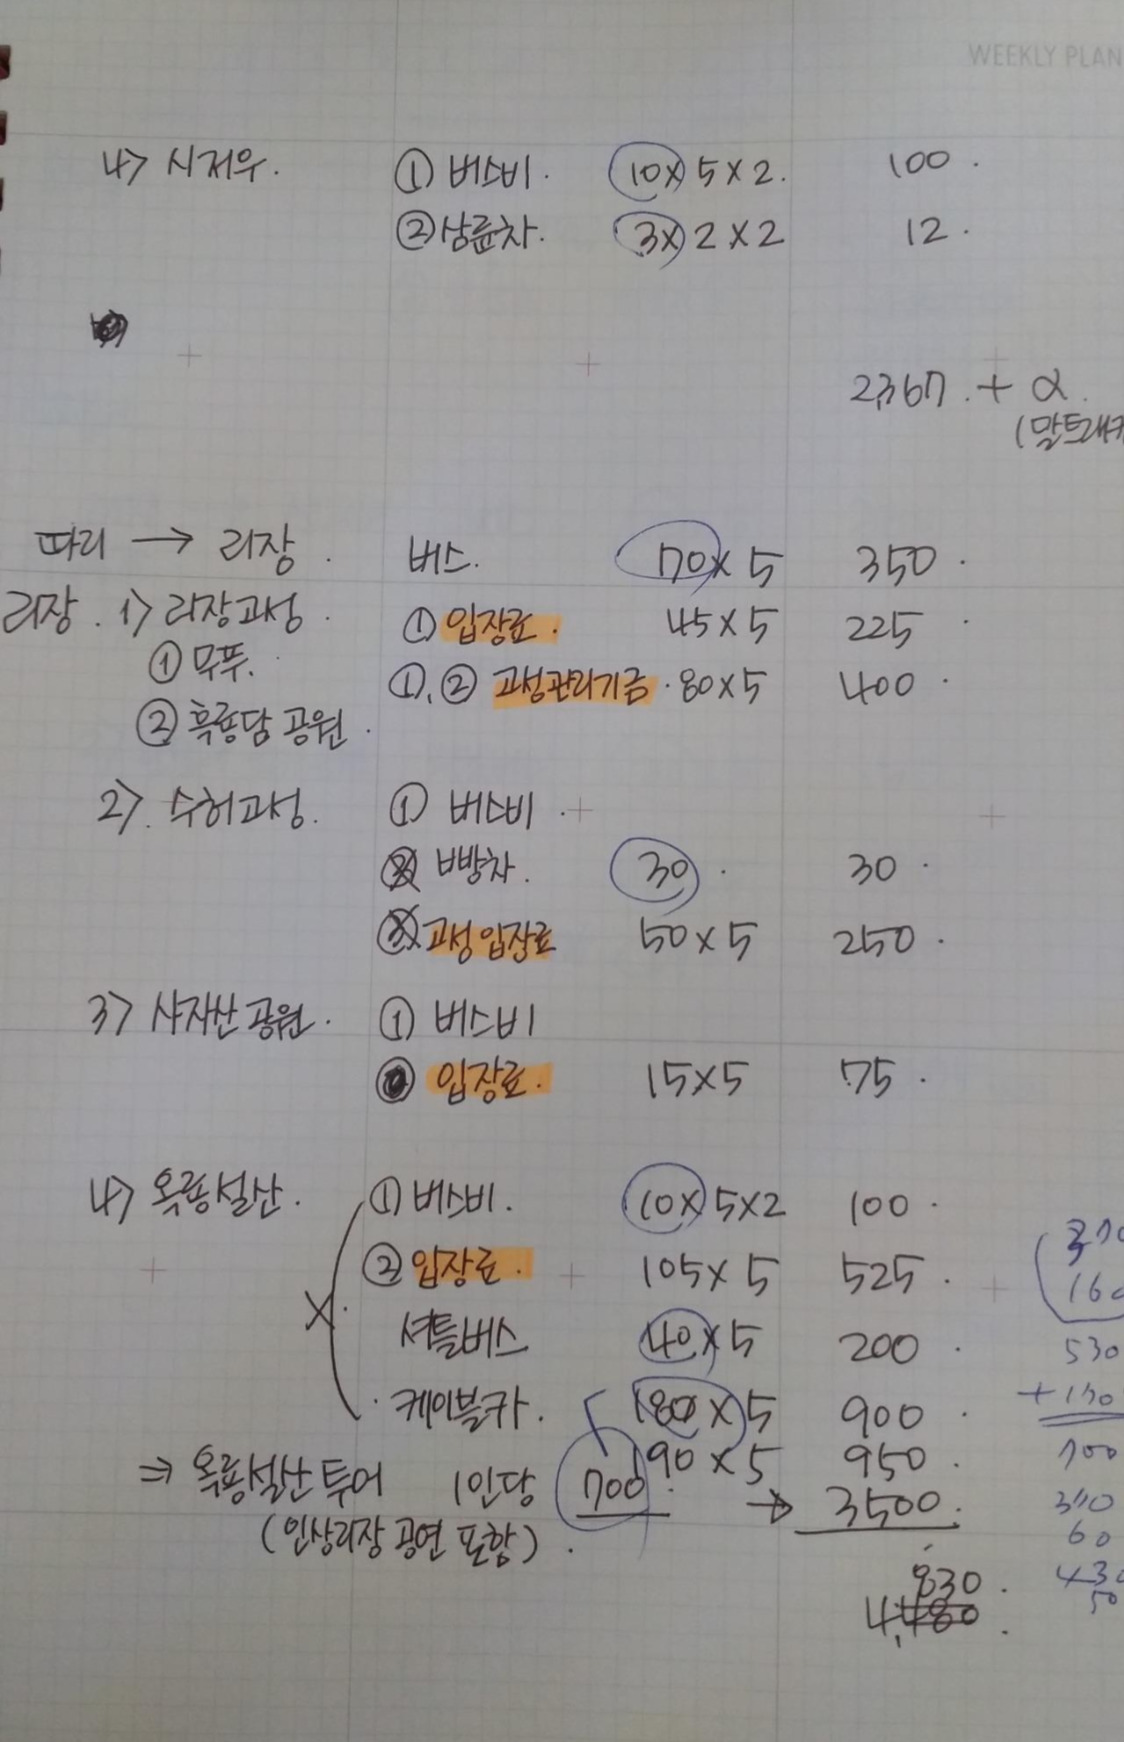 WEEKLY PLAN
4> 시저우. ① 버스비. 10×5×2. 100.
② 삼륜차. 3×2×2 12.
2,367. + α.
(말트래커
따리 → 리장. 버스. 70×5 350.
리장. 1> 리장고성. ① 입장료. 45×5 225
① 무푸. ①,② 고성관리기금. 80×5 400.
② 흑룡담 공원.
2>. 수허고성. ① 버스비.
② 빵차. 30. 30.
③ 고성입장료 50×5 250.
3> 사자산 공원. ① 버스비
입장료. 15×5 75.
4> 옥룡설산. ① 버스비. 10×5×2 100.
② 입장료. 105×5 525.
셔틀버스 40×5 200.
케이블카. 180×5 900.
190×5 950.
⇒ 옥룡설산 투어 1인당 700. → 3500.
(인상리장 공연 포함).
830.
4,480.
160
530
700
60
430
50